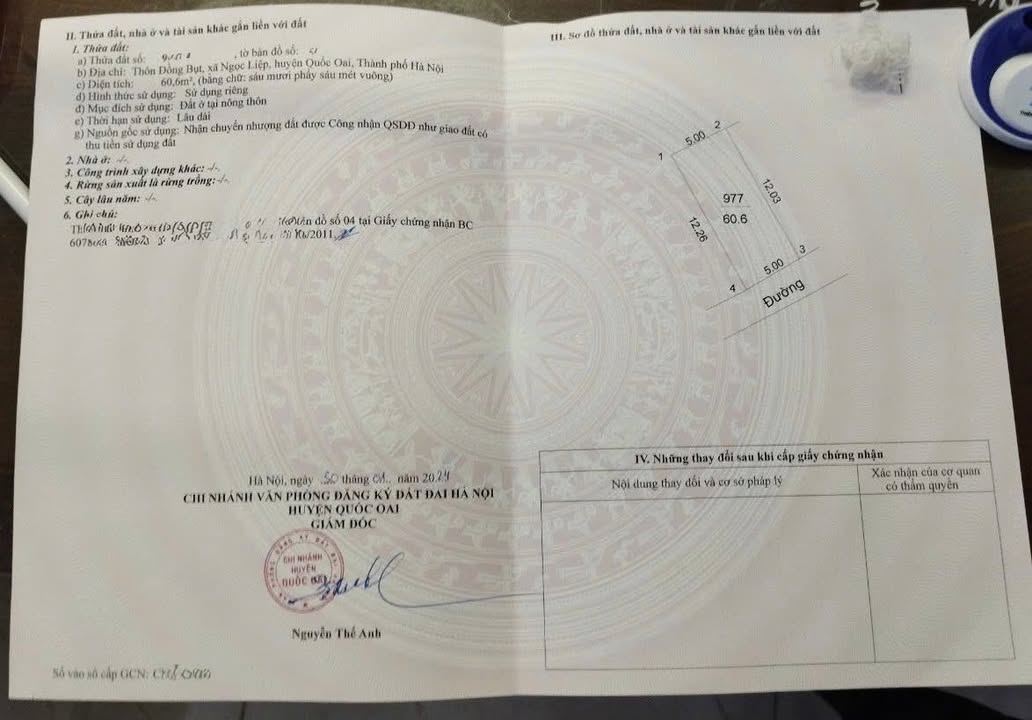 II. Thửa đất, nhà ở và tài sản khác gắn liền với đất
1. Thửa đất:
a) Thửa đất số: , tờ bản đồ số:
b) Địa chỉ: Thôn Đồng Bụt, xã Ngọc Liệp, huyện Quốc Oai, Thành phố Hà Nội
c) Diện tích: 60,6m², (bằng chữ: sáu mươi phẩy sáu mét vuông)
d) Hình thức sử dụng: Sử dụng riêng
đ) Mục đích sử dụng: Đất ở tại nông thôn
e) Thời hạn sử dụng: Lâu dài
g) Nguồn gốc sử dụng: Nhận chuyển nhượng đất được Công nhận QSDĐ như giao đất có
thu tiền sử dụng đất
2. Nhà ở: -/-
3. Công trình xây dựng khác: -/-
4. Rừng sản xuất là rừng trồng: -/-
5. Cây lâu năm: -/-
6. Ghi chú:
đồ số 04 tại Giấy chứng nhận BC
Hà Nội, ngày tháng năm 2024
CHI NHÁNH VĂN PHÒNG ĐĂNG KÝ ĐẤT ĐAI HÀ NỘI
HUYỆN QUỐC OAI
GIÁM ĐỐC
CHI NHÁNH
HUYỆN
QUỐC OAI
Nguyễn Thế Anh
Số vào sổ cấp GCN:
III. Sơ đồ thửa đất, nhà ở và tài sản khác gắn liền với đất
1
5.00
2
12.03
977
60.6
12.26
3
5.00
4
Đường
IV. Những thay đổi sau khi cấp giấy chứng nhận
Nội dung thay đổi và cơ sở pháp lý
Xác nhận của cơ quan
có thẩm quyền